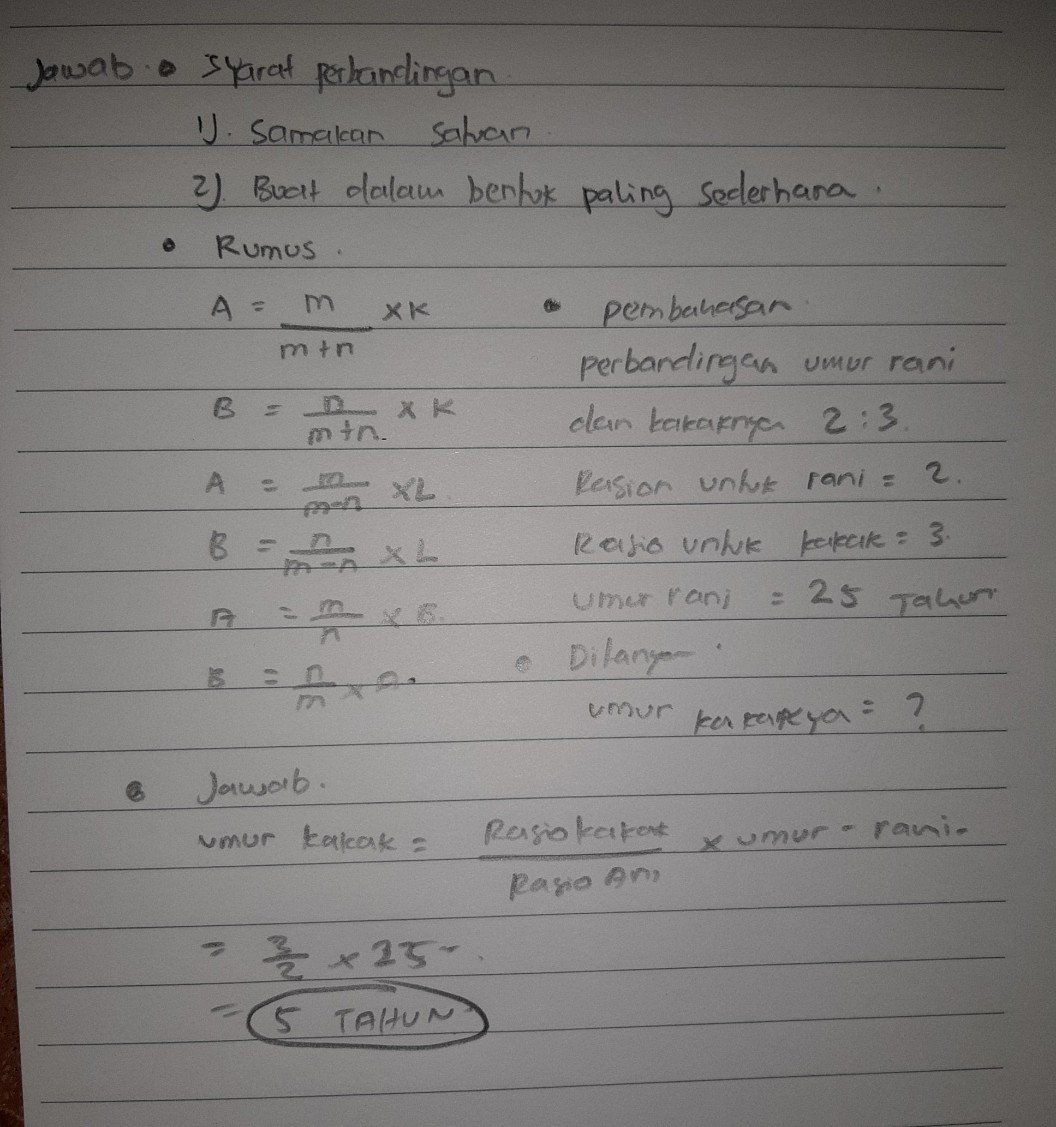 Jawab • Syarat perbandingan.
1). Samakan satuan.
2). Buat dalam bentuk paling sederhana.
• Rumus.
A = m/m+n x K
B = n/m+n. x K
A = m/m-n x L.
B = n/m-n x L
A = m/n x B.
B = n/m x A.
• pembahasan.
perbandingan umur rani
dan kakaknya 2:3.
Rasion untuk rani = 2.
Rasio untuk kakak = 3.
umur rani = 25 Tahun
• Ditanya.
umur kakakya = ?
• Jawab.
umur kakak = Rasio kakak/Rasio Ani x umur - rani-
= 3/2 x 25-.
= 5 TAHUN